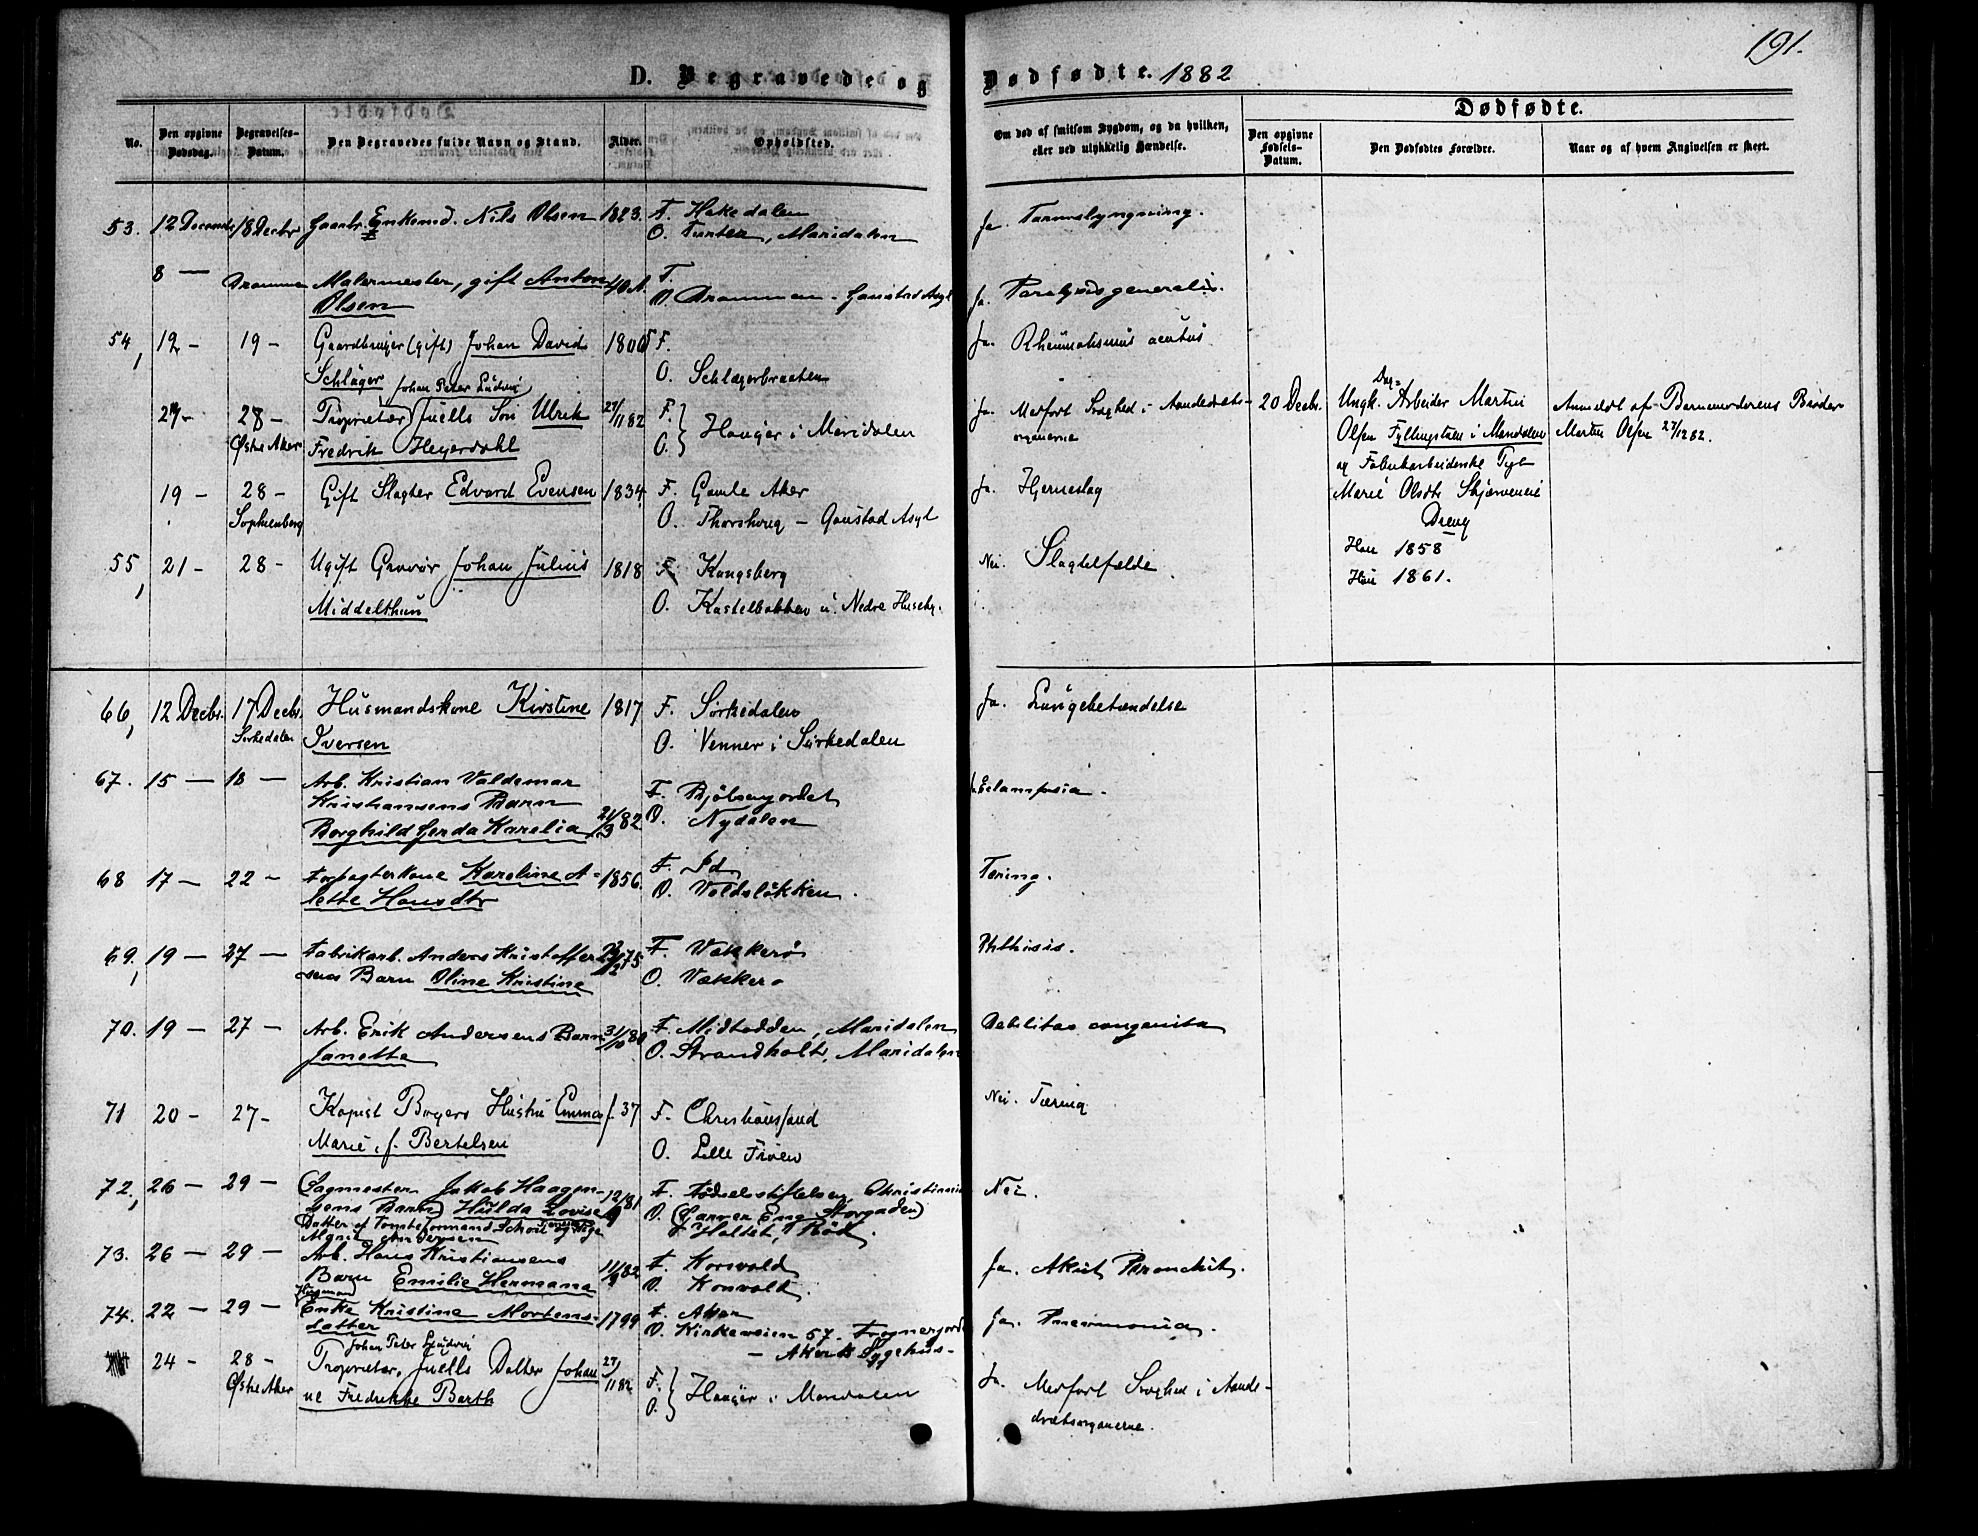 191.
D. Begravede og Dødfødte. 1882
Dødfødte.
No.
Den opgivne Dødsdag.
Begravelses-Datum.
Den Begravedes fulde Navn og Stand.
Alder.
Opholdsted.
Om død af smitsom Sygdom, og da hvilken, eller ved ulykkelig Hændelse.
Den opgivne Fødsels-Datum.
Den Dødfødtes Forældre.
Naar og af hvem Angivelsen er skeet.
53. 12 Decembr 18 Decbr Enkemd. Nils Olsen 1823. F. Hakedalen Ja. Tarmslyngning.
O. Turter, Maridalen
8 — Drammen Malermester, gift Anton 40 A. F. Ja. Paralysis generalis.
Olsen O. Drammen - Gaustad Asyl
54, 12 - 19 - Gaardbruger (gift) Johan David 1805 F. Ja. Rheumatismus acutus
Schläger O. Schlägerbraaten
Johan Peter Ludvig
27 - 28 - Proprietær Juells Søn Ulrik 27/11 82 F. Ja. Medfødt Svaghed i Aandedræts- 20 Decbr. Ungk. Arbeider Martin Anmeldt af Barnemoderens Broder
Østre Aker Fredrik Heyerdahl O. Hauger i Maridalen organerne Olsen Fyllingstuen i Maridalen Martin Olsen 27/12 82.
og Fabrikarbeiderske Pige
19 - 28 - Gift Slagter Edvard Evensen 1834 F. Gamle Aker Ja. Hjerneslag Marie Olsdtr Skjærveneie
Sophienberg O. Thorshoug - Gaustad Asyl Dreng
Han 1858
55, 21 - 28 - Ugift Gravør Johan Julius 1818 F. Kongsberg Nei. Slagtilfælde Hun 1861.
Middelthun O. Kastelbakken u. Nedre Huseby.
66, 12 Decbr. 17 Decbr. Husmandskone Kirstine 1817 F. Sørkedalen Ja. Lungebetændelse
Sørkedalen Iversen O. Venner i Sørkedalen
67. 15 — 18 — Arb. Kristian Valdemar
Kristiansens Barn F. Bjølsenjordet Eclampsia.
Borghild Gerda Karelia 21/3 82 O. Nydalen
68 17 — 22 - Forpagterkone Karoline A- 1856. F. Id Tæring.
lette Hansdtr O. Voldsløkken.
69, 19 — 27 — Fabrikarb. Anders Kristoffer F. Vækkerø Phthisis.
sens Barn Oline Kristine O. Vækkerø
70. 19 — 27 — Arb. Erik Andersens Barn 31/10 80 F. Midtodden, Maridalen Debilitas congenita
Janette O. Strandholt, Maridalen
71 20 - 27 - Kopist Bøgers Hustru Emma f. 37 F. Christianssand Nei. Tæring
Marie, f. Bertelsen O. Lille Frøen
72, 26 — 29 — (Sagmester Jakob Haagen- 12/9 81 F. Fødselsstiftelsen, Christiania Nei.
sens Barn) Hulda Lovise O. (Garver Eng, Storgaden)
Datter af Tomteformand og Pige Holdt, Röd.
Andersen
73. 26 — 29 — Arb. Hans Kristiansens 11/9 82 F. Korsvold Ja. Akut Bronchit.
Barn Emilie Hermana O. Korsvold.
(Husmand)
74. 22 — 29 — Enke Kristine Mortens- 1799 F. Aker Ja. Pneumonia.
datter O. Kirkeveien 57 - Frognerjordet
— Akers Sygehus -
Johan Peter Ludvig
24 - 28 - Proprietær, Juells Datter Johan 27/11 82 F. Ja. Medfødt Svaghed i Aande-
Østre Aker ne Fredrikke Barth O. Hauger i Maridalen drætsorganerne.